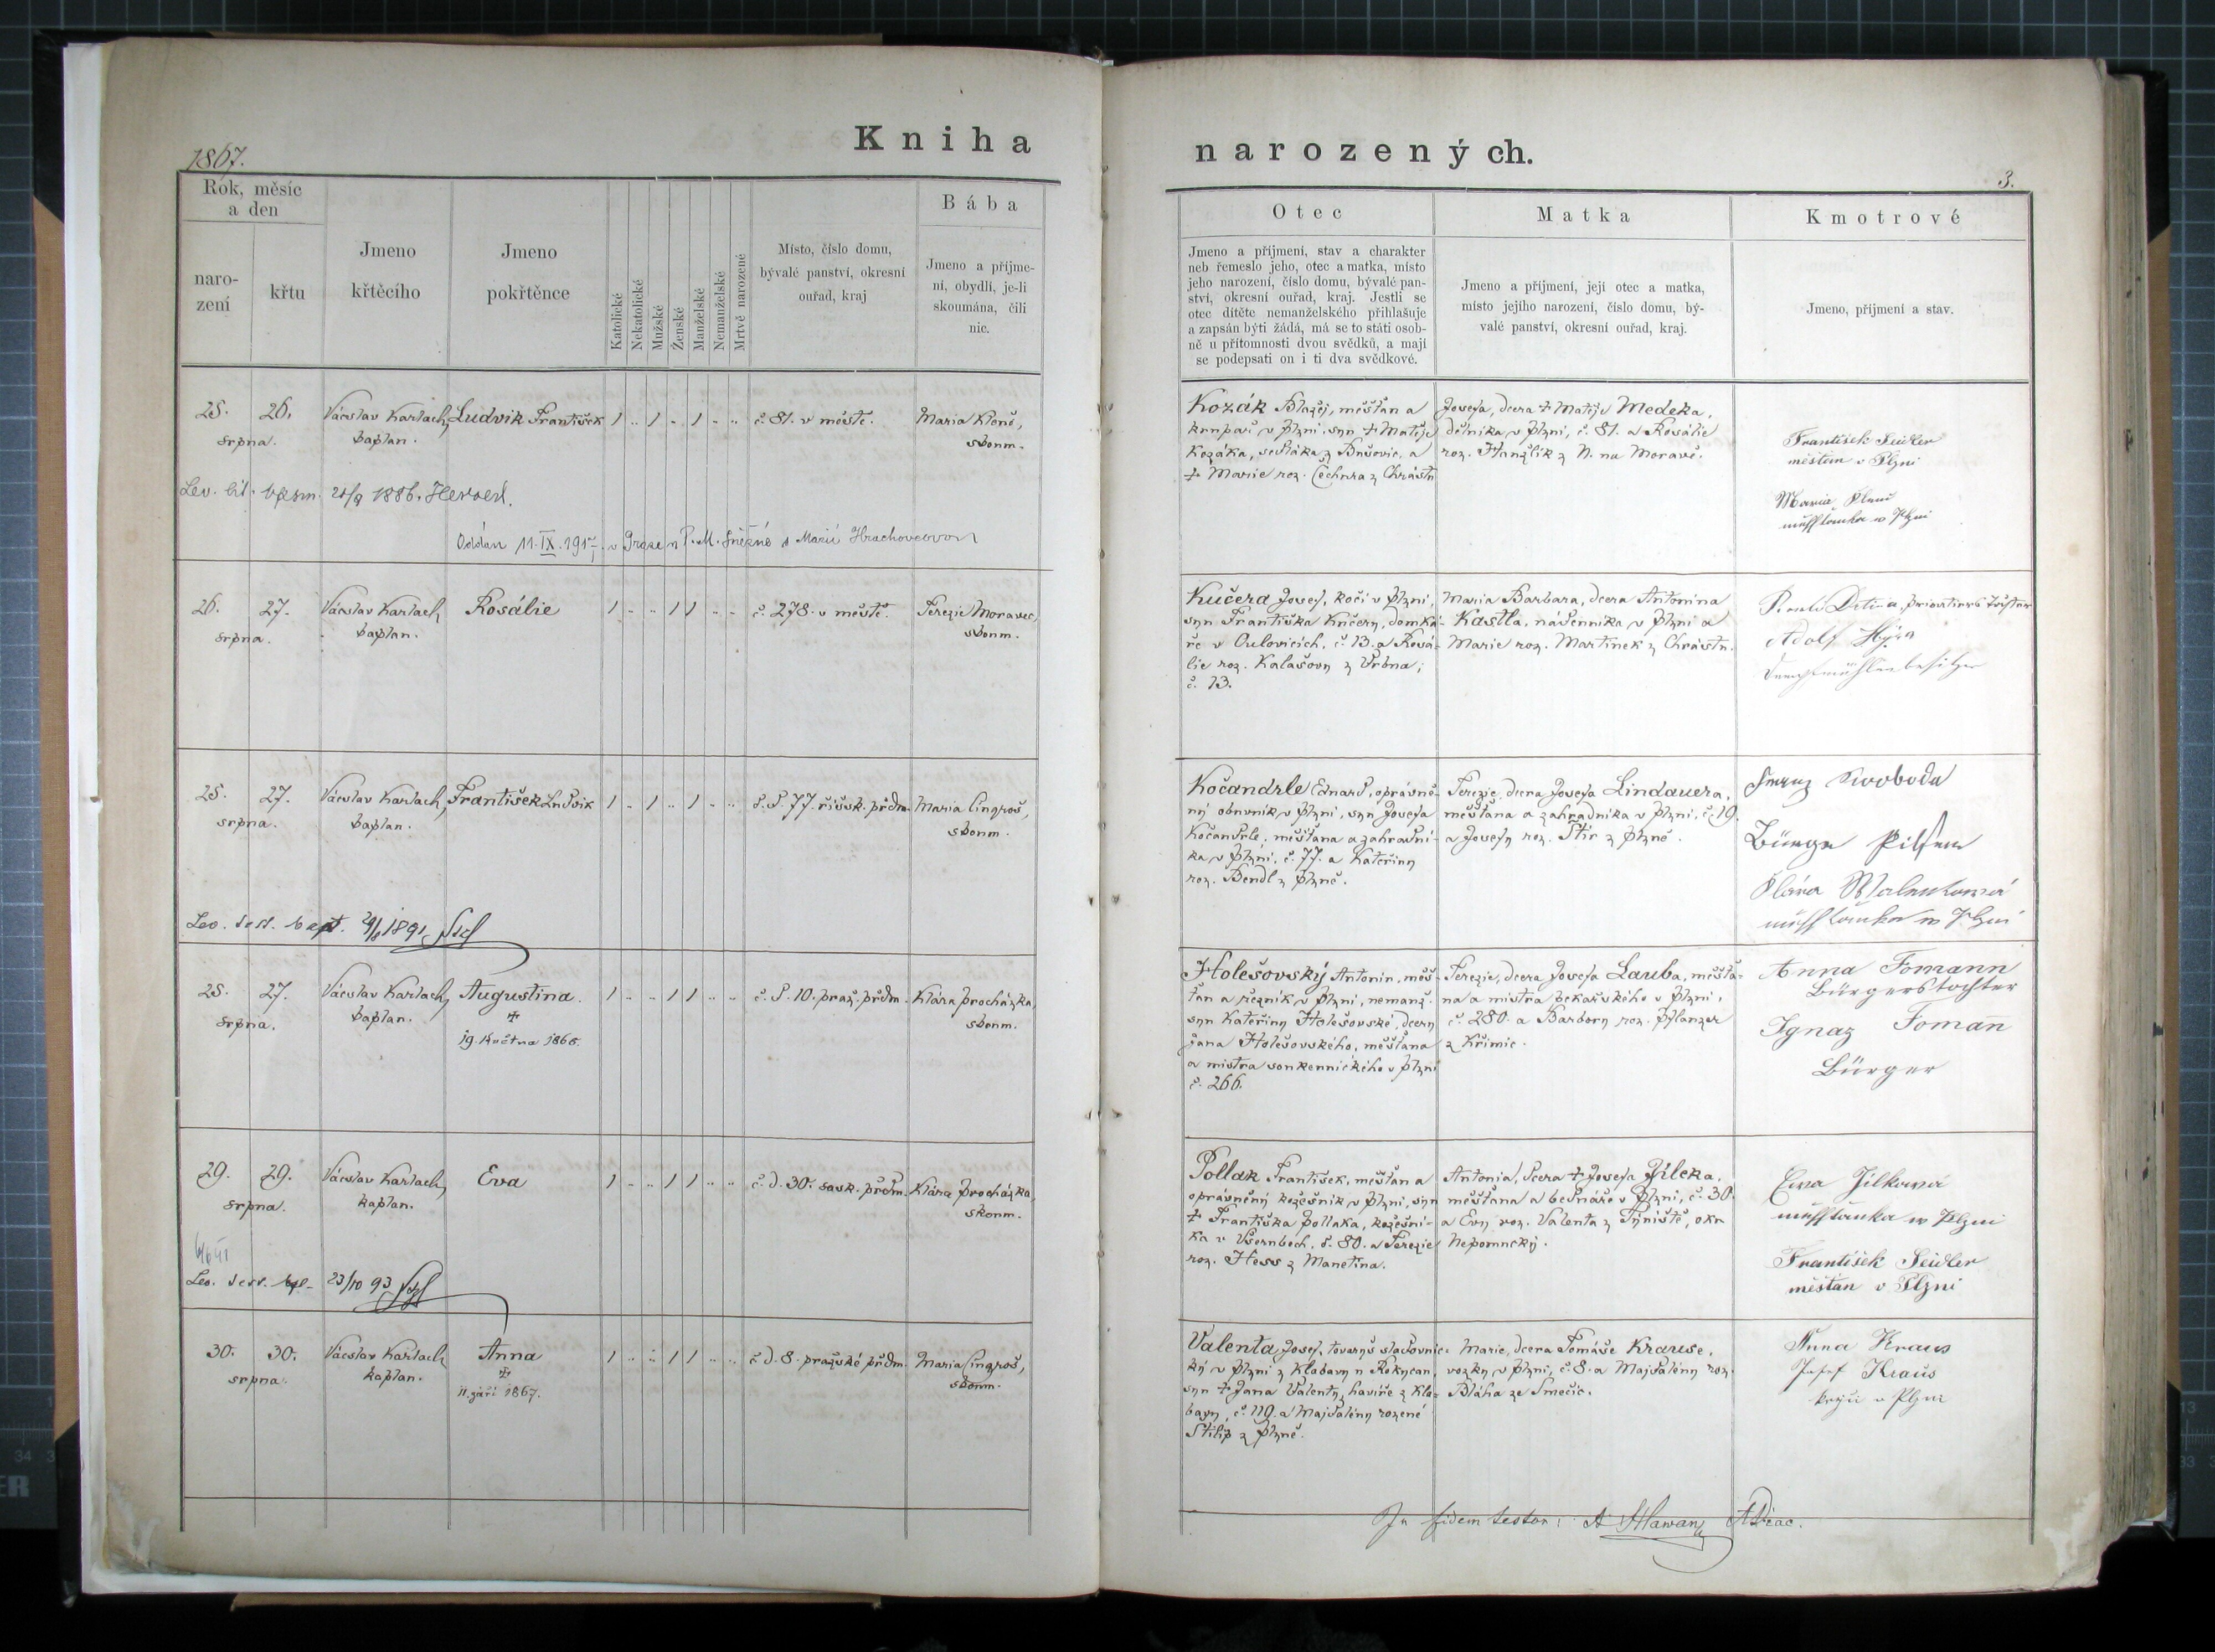 Kniha
narozených.
1867.
3.
Rok, měsíc
a den
naro-
zení
křtu
Jmeno
křtěcího
Jmeno
pokřtěnce
Katolické
Nekatolické
Mužské
Ženské
Manželské
Nemanželské
Mrtvě narozené
Místo, číslo domu,
bývalé panství, okresní
ouřad, kraj
Bába
Jmeno a příjme-
ní, obydlí, je-li
skoumána, čili
nic.
Otec
Jmeno a příjmení, stav a charakter
neb řemeslo jeho, otec a matka, místo
jeho narození, číslo domu, bývalé pan-
ství, okresní ouřad, kraj. Jestli se
otec dítěte nemanželského přihlašuje
a zapsán býti žádá, má se to státi osob-
ně u přítomnosti dvou svědků, a mají
se podepsati on i ti dva svědkové.
Matka
Jmeno a příjmení, její otec a matka,
místo jejího narození, číslo domu, bý-
valé panství, okresní ouřad, kraj.
Kmotrové
Jmeno, příjmení a stav.
25. 26.
srpna.
Václav Karlach,
kaplan.
Ludvik František
1 .. 1 .. 1 .. ..
č. 81. v městě.
Maria Klené,
skoum.
Kozák Blažej, měšťan a
krupař v Plzni, syn + Matěje
Kozáka, sedláka z Bušovic, a
+ Marie roz. Čechura z Chrástu
Josefa, dcera + Matěje Medeka,
dělníka v Plzni, č. 81. a Rosálie
roz. Hanzlik z N. na Moravě.
František Seidler
měšťan v Plzni
Maria
měšťanka w Plzni
1886.
Oddán 11. IX. 191 v Praze u P. M. Sněžné s Marií Hrachovcovou
26. 27.
srpna.
Václav Karlach,
kaplan.
Rosálie
1 .. .. 1 1 .. ..
č. 278. v městě.
Terezie Moravec,
skoum.
Kučera Josef, kočí v Plzni,
syn Františka Kučery, domká-
ře v Oulovicích, č. 13. a Rosá-
lie roz. Kalašovy z Vrbna,
č. 13.
Maria Barbara, dcera Antonína
Kastla, nádenníka v Plzni a
Marie roz. Martinek z Chrástu.
Adolf
Dampfmühlenbesitzer
25. 27.
srpna.
Václav Karlach,
kaplan.
František Ludvik
1 .. 1 .. 1 .. ..
č. d. 77. říšsk. předm.
Maria Cingroš,
skoum.
Kočandrle Eduard, oprávně-
ný obuvník v Plzni, syn Josefa
Kočandrle, měšťana a zahradní-
ka v Plzni, č. 77. a Kateřiny
roz. Bendl z Plzně.
Terezie, dcera Josefa Lindauera,
měšťana a zahradníka v Plzni, č. 19.
a Josefy roz. Štir z Plzně.
Franz Swoboda
Bürger Pilsen
Klára
měšťanka w Plzni
Lev. test. bapt. 1891
25. 27.
srpna.
Václav Karlach,
kaplan.
Augustina.
+
19. května 1868.
1 .. .. 1 1 .. ..
č. d. 10. praž. předm.
Klára Procházka,
skoum.
Holešovský Antonín, měš-
ťan a řezník v Plzni, nemanž.
syn Kateřiny Holešovské, dcery
Jana Holešovského, měšťana
a mistra soukennického v Plzni
č. 266.
Terezie, dcera Josefa Lauba, měšťa-
na a mistra pekařského v Plzni,
č. 280. a Barbory roz. Pflanzer
z Křimic.
Anna Tomann
Bürgerstochter
Ignaz Toman̄
Bürger
29. 29.
srpna.
Václav Karlach,
kaplan.
Eva
1 .. .. 1 1 .. ..
č. d. 30. sask. předm.
Klára Procházka,
skoum.
Pollak František, měšťan a
oprávněný kožešník v Plzni, syn
+ Františka Pollaka, kožešní-
ka v Všerubech, č. 80. a Terezie
roz. Hess z Manetína.
Antonia, dcera + Josefa Jílka,
měšťana a bednáře v Plzni, č. 30.
a Evy roz. Valenta z Týniště, okr.
Nepomucký.
Ewa Jílkowá
měšťanka w Plzni
František Seidler
měšťan v Plzni
Lev. test. 23/10 93
30. 30.
srpna.
Václav Karlach
kaplan.
Anna
+
11. září 1867.
1 .. .. 1 1 .. ..
č. d. 8. pražské předm.
Maria Cingroš,
skoum.
Valenta Josef, tovaryš sladovnic-
ký v Plzni z Klabavy u Rokycan,
syn + Jana Valenty, havíře z Kla-
bavy, č. 110. a Majdalény rozené
Stilip z Plzně.
Marie, dcera Tomáše Krause,
vozky v Plzni, č. 8. a Majdalény roz.
Bláha ze Smečic.
Anna Kraus
Josef Kraus
krejčí v Plzni
In fidem testor: